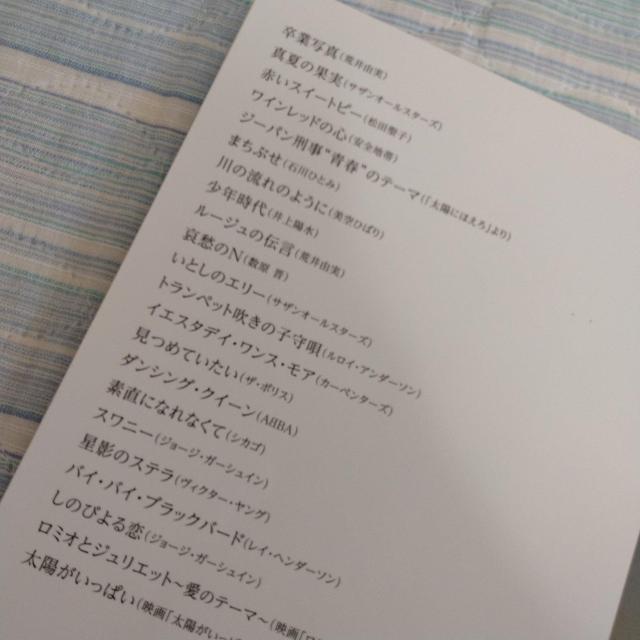 卒業写真(荒井由実)
真夏の果実(サザンオールスターズ)
赤いスイートピー(松田聖子)
ワインレッドの心(安全地帯)
ジーパン刑事"青春"のテーマ(「太陽にほえろ」より)
まちぶせ(石川ひとみ)
川の流れのように(美空ひばり)
少年時代(井上陽水)
ルージュの伝言(荒井由実)
哀愁のN(柳原 晋)
いとしのエリー(サザンオールスターズ)
トランペット吹きの子守唄(ルロイ・アンダーソン)
イエスタデイ・ワンス・モア(カーペンターズ)
見つめていたい(ザ・ポリス)
ダンシング・クイーン(ABBA)
素直になれなくて(シカゴ)
スワニー(ジョージ・ガーシュイン)
星影のステラ(ヴィクター・ヤング)
バイ・バイ・ブラックバード(レイ・ヘンダーソン)
しのびよる恋(ジョージ・ガーシュイン)
ロミオとジュリエット~愛のテーマ~(映画「
太陽がいっぱい(映画「太陽がいっ